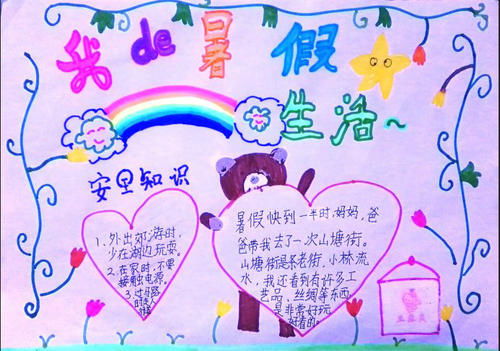 我de暑假
生活~
安全知识
1、外出郊游时,
少在湖边玩耍。
2、在家时,不要
接触电源。
3、过马路
暑假快到一半时,妈妈,爸
爸带我去了一次山塘街。
山塘街是条老街,小桥流
水,我还看到有许多工
艺品、丝绸等东西
是非常好玩
好看的。